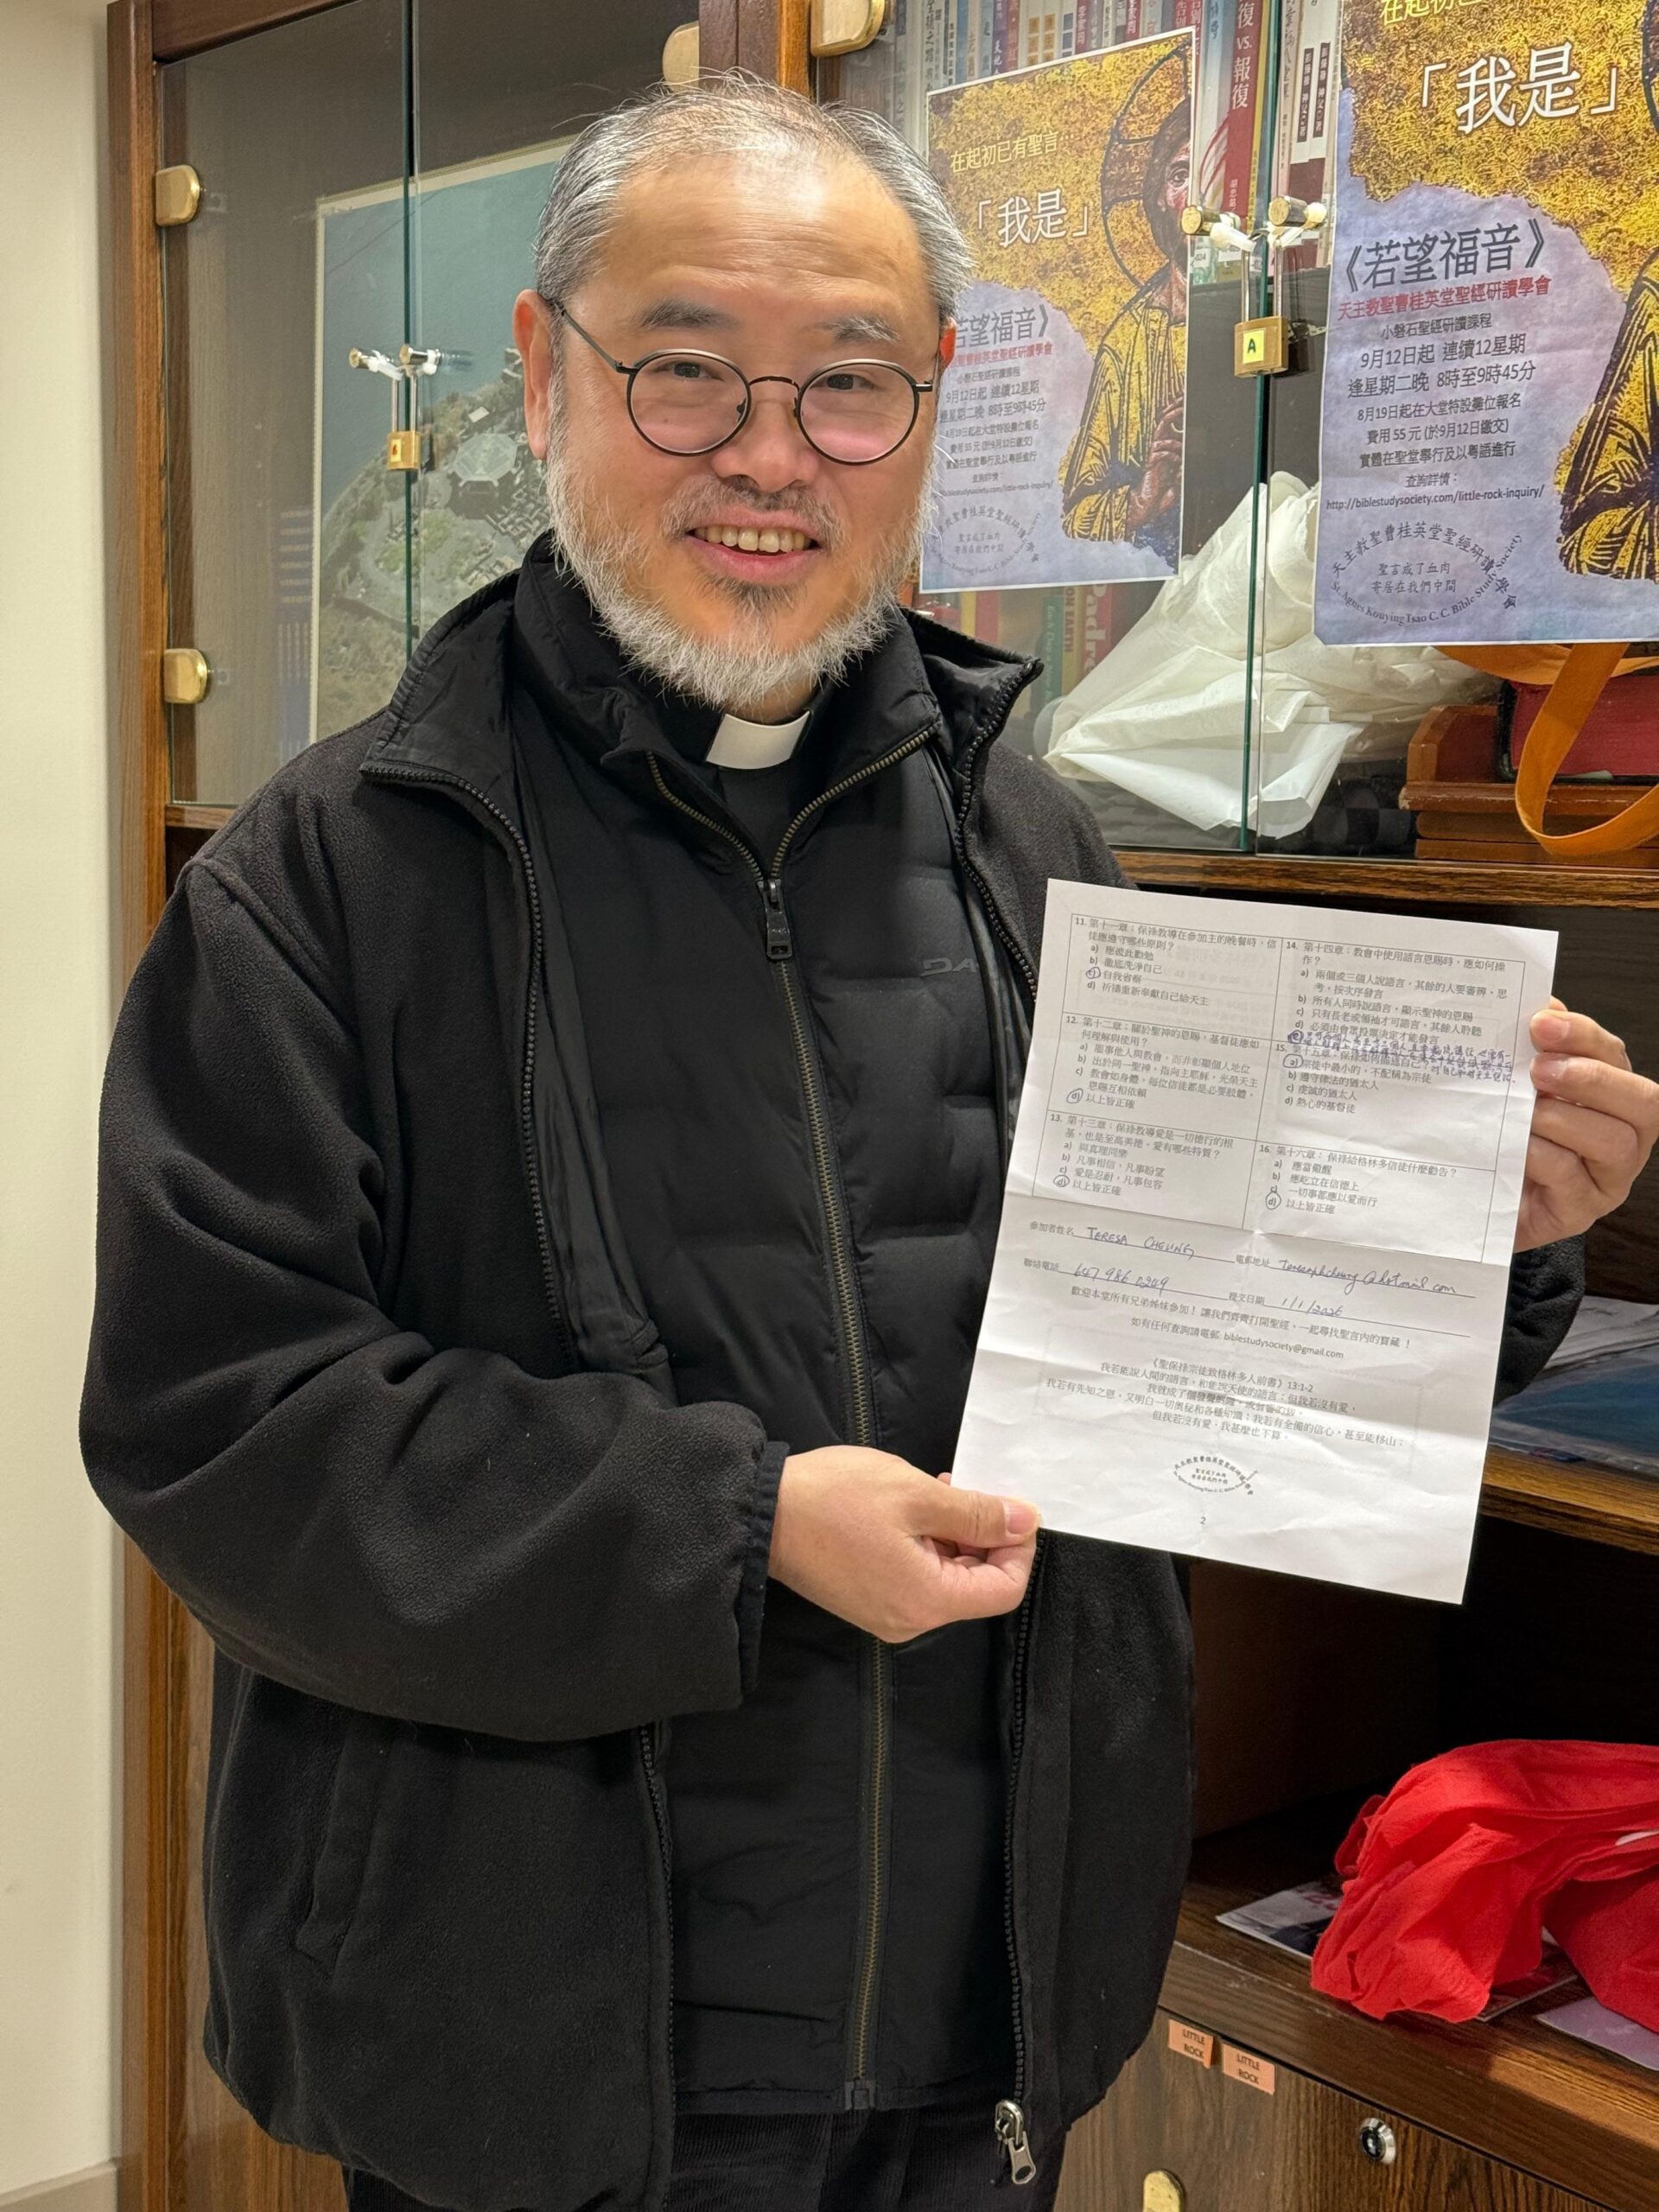 在起初已有聖言
「我是」
若望福音》
小磐石聖經研讀課程
9月12日起 連續12星期
逢星期二晚 8時至9時45分
8月19日起在大堂特設攤位報名
費用 55 元 (於9月12日繳交)
實體在聖堂舉行及以粵語進行
查詢詳情：
VS.
報復
「我是」
《若望福音》
天主教聖曹桂英堂聖經研讀學會
小磐石聖經研讀課程
9月12日起 連續12星期
逢星期二晚 8時至9時45分
8月19日起在大堂特設攤位報名
費用 55 元 (於9月12日繳交)
實體在聖堂舉行及以粵語進行
查詢詳情：
http://biblestudysociety.com/little-rock-inquiry/
天主教聖曹桂英堂聖經研讀學會
聖言成了血肉
寄居在我們中間
St. Agnes Kouying Tsao C. C. Bible Study Society
A
DA
11. 第十一章：保祿教導在參加主的晚餐時，信
徒應遵守哪些原則？
a) 應彼此勸勉
b) 徹底洗淨自己
c) 自我省察
d) 祈禱重新奉獻自己給天主
12. 第十二章：關於聖神的恩賜，基督徒應如
何理解與使用？
a) 服事他人與教會，而非彰顯個人地位
b) 出於同一聖神，指向主耶穌，光榮天主
c) 教會如身體，每位信徒都是必要肢體，
恩賜互相依賴
d) 以上皆正確
13. 第十三章：保祿教導愛是一切德行的根
基，也是至高美德。愛有哪些特質？
a) 與真理同樂
b) 凡事相信，凡事盼望
c) 愛是忍耐，凡事包容
d) 以上皆正確
14. 第十四章：教會中使用語言恩賜時，應如何操
作？
a) 兩個或三個人說語言，其餘的人要審辨、思
考，按次序發言
b) 所有人同時說語言，顯示聖神的恩賜
c) 只有長老或領袖才可語言，其餘人聆聽
d) 必須由會眾投票決定才能發言
15. 第十五章：保祿如何描述自己？
a) 宗徒中最小的，不配稱為宗徒
b) 遵守律法的猶太人
c) 虔誠的猶太人
d) 熱心的基督徒
16. 第十六章：保祿給格林多信徒什麼勸告？
a) 應當儆醒
b) 應屹立在信德上
c) 一切事都應以愛而行
d) 以上皆正確
參加者姓名 TERESA CHEUNG 電郵地址 teresaphcheung@hotmail.com
聯絡電話 647 986 0249 提交日期 1/1/2026
歡迎本堂所有兄弟姊妹參加！讓我們齊齊打開聖經，一起尋找聖言內的寶藏！
如有任何查詢請電郵: biblestudysociety@gmail.com
《聖保祿宗徒致格林多人前書》13:1-2
我若能說人間的語言，和能說天使的語言；但我若沒有愛，
我就成了個發聲的鑼，或發響的鈸。
我若有先知之恩，又明白一切奧秘和各種知識；我若有全備的信心，甚至能移山；
但我若沒有愛，我甚麼也不算。
2
LITTLE
ROCK
LITTLE
ROCK